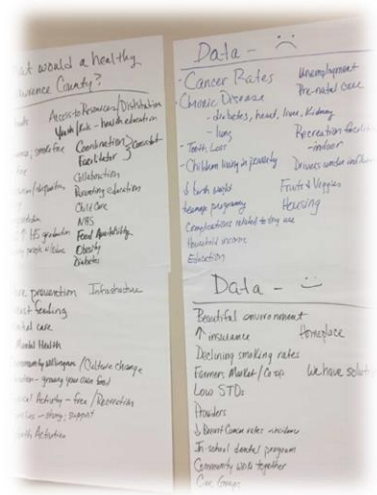 at would a healthy
wrence County?
Access to Resources/Distribution
Youth/Kids - health education
Coordination
Facilitator
Collaboration
Parenting education
Child Care
NAS
HS graduation Food Availability
Obesity
Diabetes
prevention Infrastructure
feeding
care
Mental Health
Community willingness /Culture change
- growing your own food
Activity - free /Recreation
- strong, support
Activities
Data - :(
- Cancer Rates
- Chronic Disease
- diabetes, heart, liver, kidney
- lung
- Tooth Loss
- Children living in poverty
↓ birth weight
teenage pregnancy
Complications related to drug use
Household income
Education
Unemployment
Pre-natal care
Recreation facilities
- indoor
Fruits & Veggies
Housing
Data - :)
Beautiful environment
↑ insurance
Homeplace
Declining smoking rates
Farmers Market/Co-op
We have
Low STDs
Providers
↓ Breast Cancer rates incidence
In-school dental program
Community work together
Care Groups